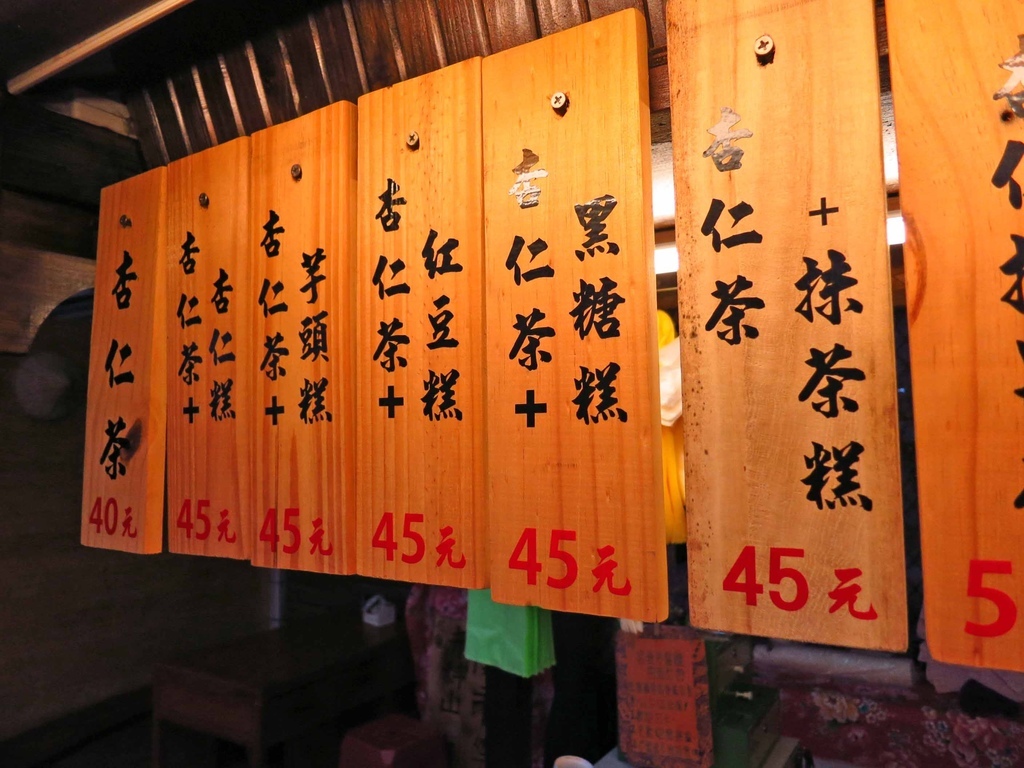 杏仁茶
40元
杏仁茶+
杏仁糕
45元
杏仁茶+
芋頭糕
45元
杏仁茶+
紅豆糕
45元
杏仁茶+
黑糖糕
45元
杏仁茶
+抹茶糕
45元
5